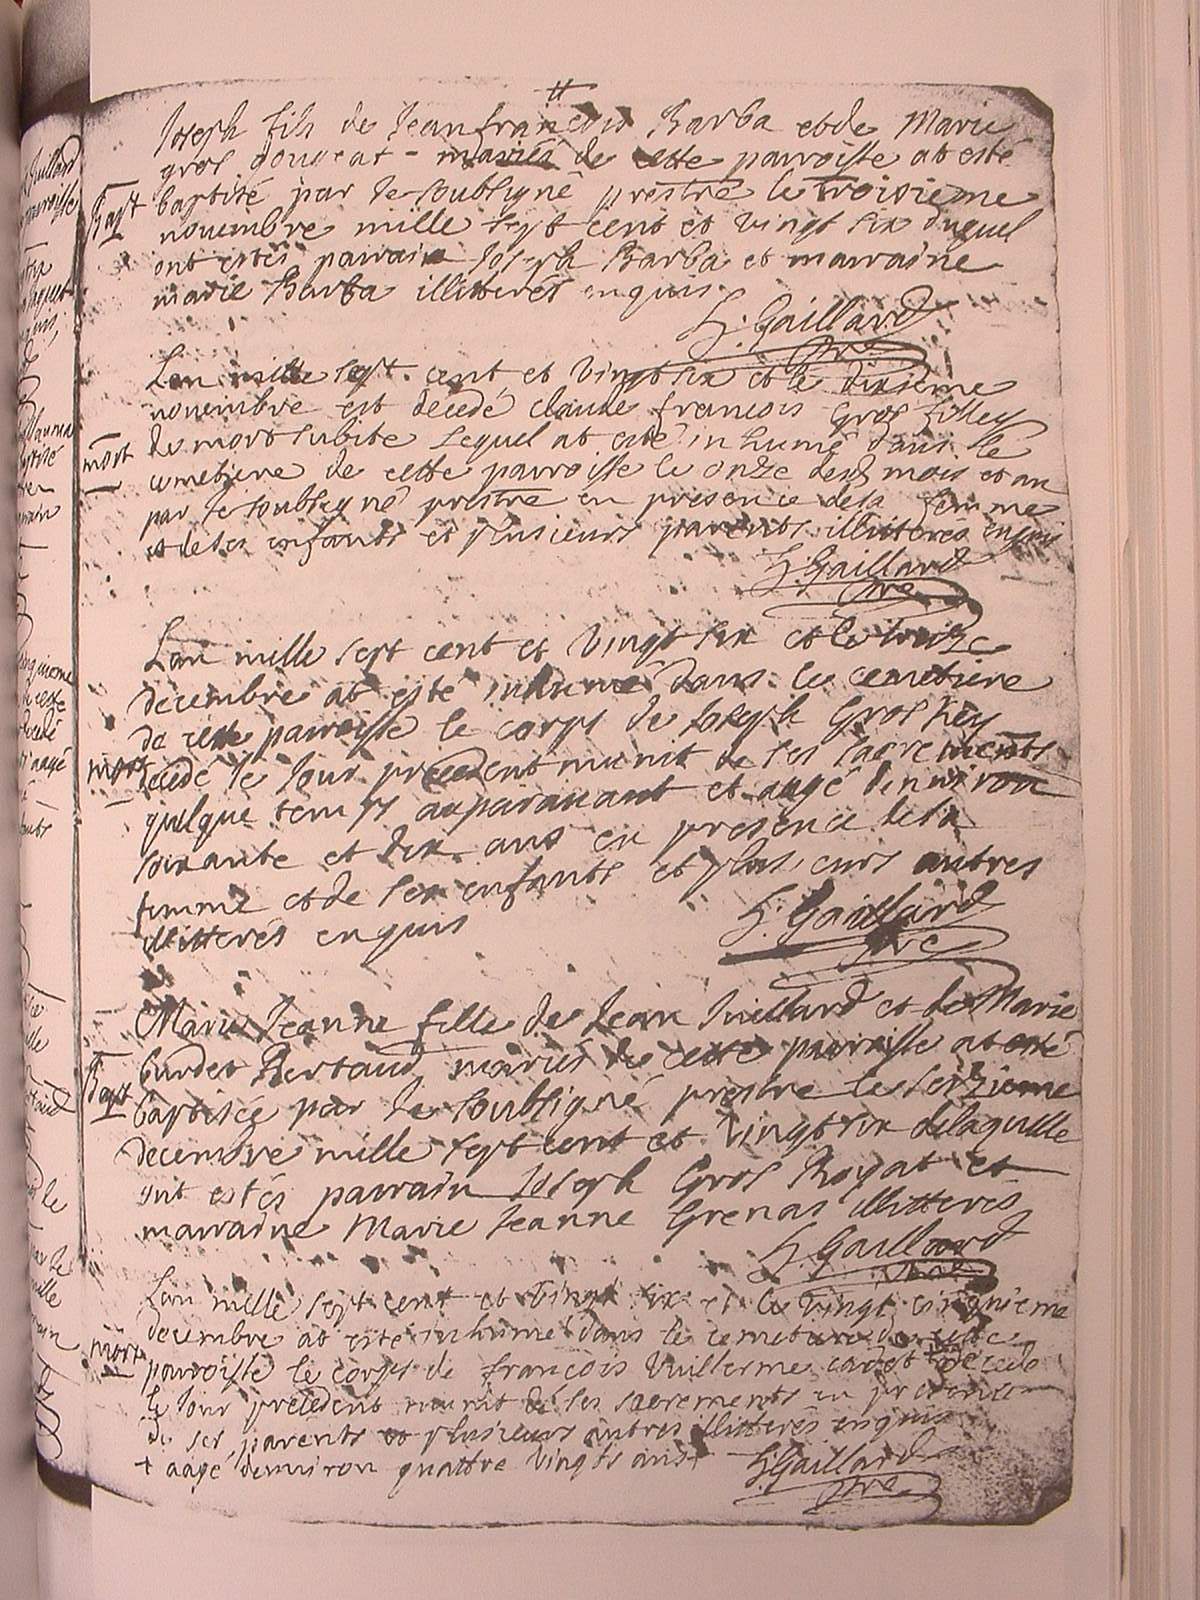 Joseph fils de Jeanfrancois Barba et de Marie
gros gougeat - mariés de cette parroisse at esté
Bapt baptisé par le soubsigné prestre le troisieme
novembre mille sept cent et vingt six duquel
ont estés parrain Joseph Barba et marraine
marie Barba illitterés enquis.
h. Gaillard
pre
Lan mille sept cent et vingt six et le dixieme
novembre est décedé claude francois Gros
mort de mort subite lequel at esté inhumé dans le
cemetiere de cette parroisse le onze desd mois et an
par le soubsigné prestre en presence de sa femme
et de ses enfants et plusieurs parents illitterés enquis
h. Gaillard
pre
Lan mille sept cent et vingt six et le treize
decembre at esté inhumé dans le cemetiere
de cette parroisse le corps de Joseph Gros
mort décdé le jour precedent munit de ses sacrements
quelque temps auparavant et aagé denviron
soixante et dix ans en presence de sa
femme et de ses enfants et plusieurs autres
illitterés enquis
h. Gaillard
pre
Marie Jeanne fille de Jean Vuillard et de Marie
Bapt burdet Bertaud mariés de cette parroisse at esté
baptisée par le soubsigné prestre le seizieme
decembre mille sept cent et vingt six de laquelle
ont estés parrain Joseph Gros Royat et
marraine Marie Jeanne Grenas illitterés
h. Gaillard
pre
Lan mille sept cent et vingt six et le vingt cinquieme
decembre at esté inhumé dans le cemetiere de cette
mort parroisse le corps de francois Vuillerme cadet décedé
le jour precedent munit de ses sacrements en presence
de ses parents et plusieurs autres illitterés enquis
+ aagé denviron quattre vingts ans +
h. Gaillard
pre